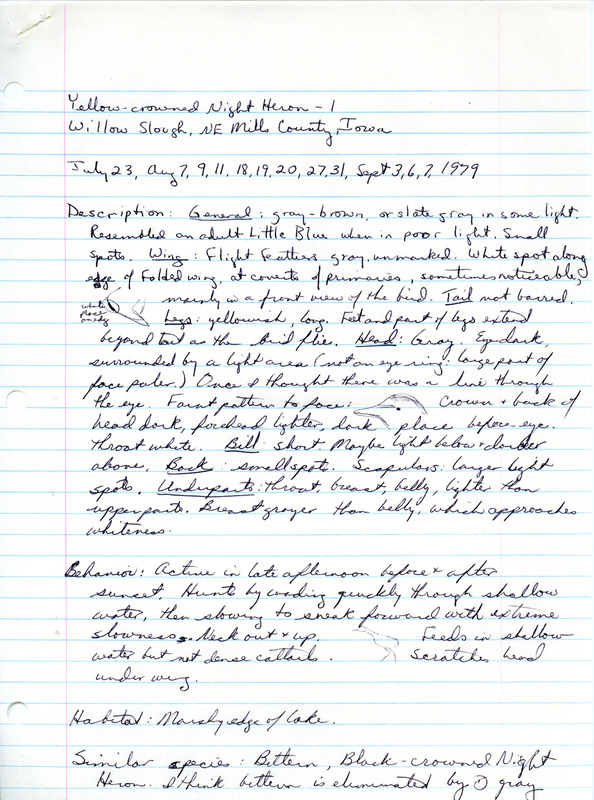 Yellow-crowned Night Heron - 1
Willow Slough, NE Mills County, Iowa
July 23, Aug 7, 9, 11, 18, 19, 20, 27, 31, Sept 3, 6, 7, 1979
Description: General: gray-brown, or slate gray in some light.
Resembled an adult Little Blue when in poor light. Small
spots. Wing: Flight feathers gray, unmarked. White spot along
edge of folded wing, at coverts of primaries, sometimes noticeable,
white place on edge
mainly in a front view of the bird. Tail not barred.
Legs: yellowish, long. Feet and part of legs extend
beyond tail as the bird flies. Head: Gray. Eye dark,
surrounded by a light area (not an eye ring: large part of
face paler.) Once I thought there was a line through
the eye. Faint pattern to face: Crown & back of
head dark, forehead lighter, dark place before eye.
throat white. Bill: short. Maybe light below & darker
above. Back: small spots. Scapulars: larger light
spots. Underparts: throat, breast, belly, lighter than
upperparts. Breast grayer than belly, which approaches
whiteness.
Behavior: Active in late afternoon before & after
sunset. Hunts by wading quickly through shallow
water, then slowing to sneak forward with extreme
slowness. Neck out & up. Feeds in shallow
water but not dense cattails. Scratches head
under wing.
Habitat: Marshy edge of lake.
Similar species: Bittern, Black-crowned Night
Heron. I think bittern is eliminated by ① gray